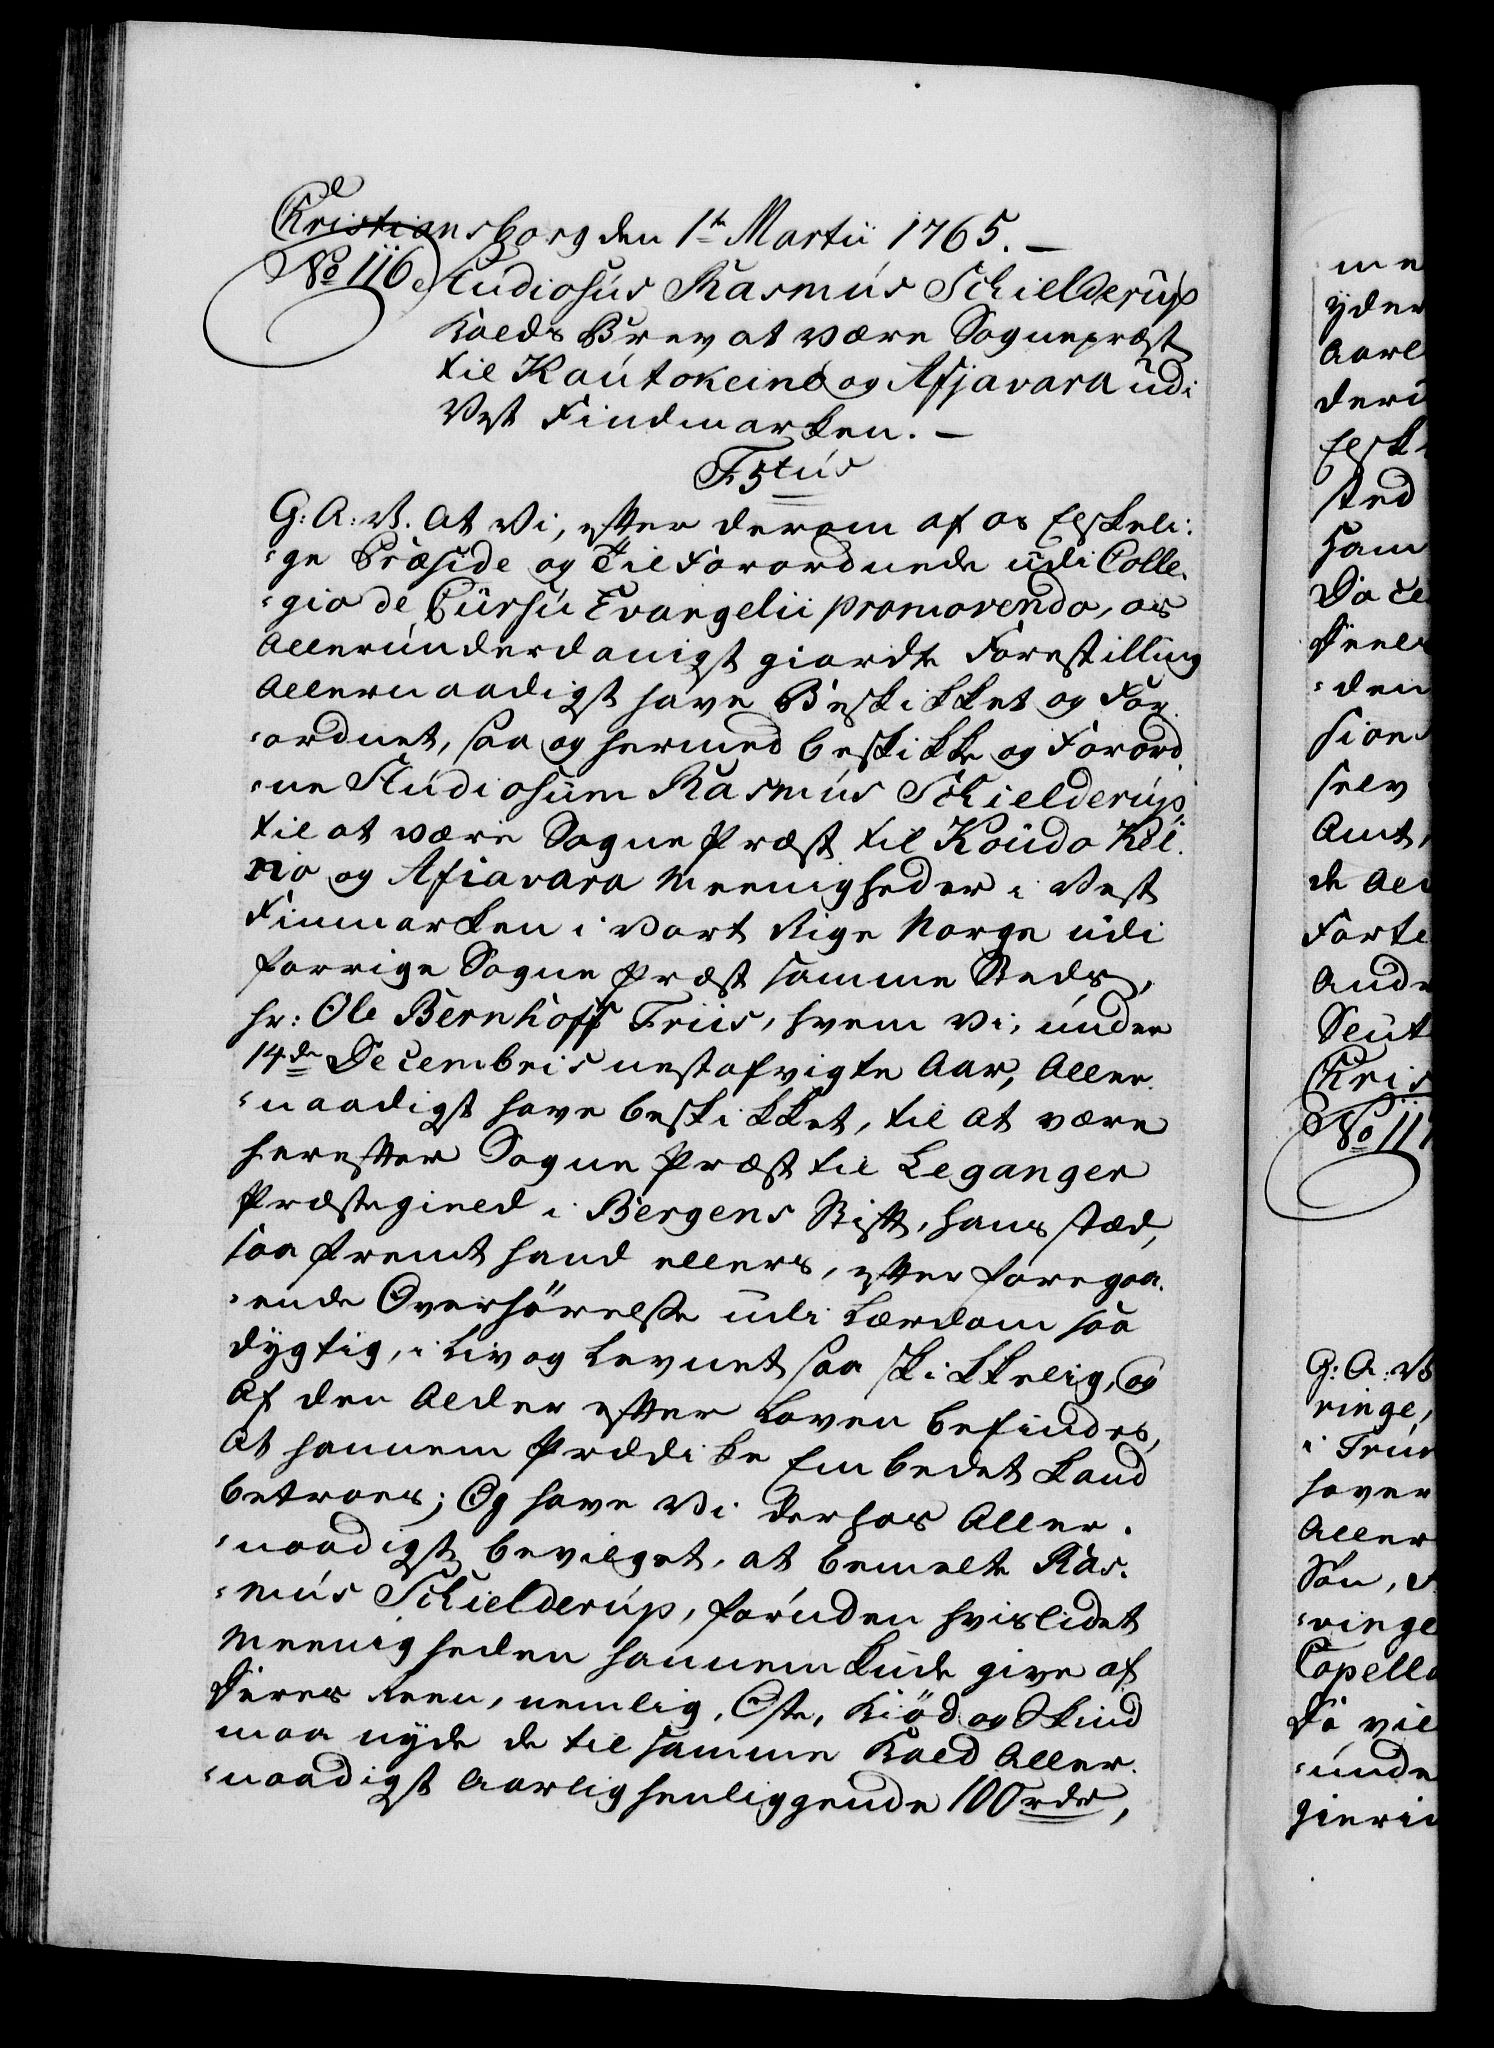 Kristiansborg den 1te Martii 1765. –
No 116. Studiosus Rasmus Schielderup
Kalds Brev at være Sognepræst
til Kautokeino og Afjavara udi
Vest Findmarken. –
F. 5tus
G: A: V. At Vi, efter derom af os Elskeli:
:ge Præside og Til Forordnede udi Colle:
:gio de Cursu Evangelii promovendo, os
allerunderdanigst giorde Forestilling
allernaadigst have Beskikket og For:
:ordnet, saa og hermed beskikke og Forord:
:ne Studiosum Rasmus Schielderup,
til at være Sogne Præst til Koudo Kei:
nio og Afiavara Meenigheder i Vest
Finmarken i Vort Rige Norge udi
forrige Sogne Præst samme Steds,
hr: Ole Bernhoff Friis, hvem Vi, under
14de Decembris nestafvigte Aar, Aller:
:naadigst have beskikket, til at være
herefter Sogne Præst til Leganger
Præstegield i Bergens Stift, hans stæd,
saa fremt hand ellers, efter foregaa:
:ende Overhörelse udi Lærdom saa
dygtig, i Liv og Levnet saa skikkelig, og
af den Alder efter Loven befindes,
at hannem Prædike Embedet kand
betroes; Og have Vi derhos Aller:
:naadigst bevilget, at bemelte Ras:
:mus Schielderup, foruden hvis lidet
Meenigheden hannem kunde give af
Deres Reen, nemlig, Oste, Kiöd og Skind
maa nyde de til samme Kald Aller:
:naadigst Aarlig henliggende 100 rdr,